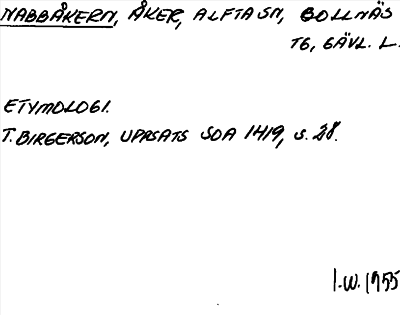 NABBÅKERN, ÅKER, ALFTA SN, BOLLNÄS
TG, GÄVL. L.
ETYMOLOGI.
T. BIRGERSON, UPPSATS SOA 1419, S. 28.
I.W. 1955